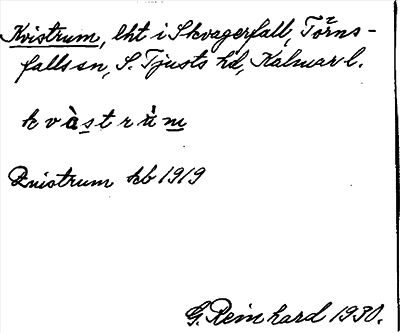 Kvistrum, lht i Skvagerfall, Törns-
falls sn, S. Tjusts hd, Kalmar l.
k v à s t r ù m
Quistrum kb 1919
G. Reinhard 1930.